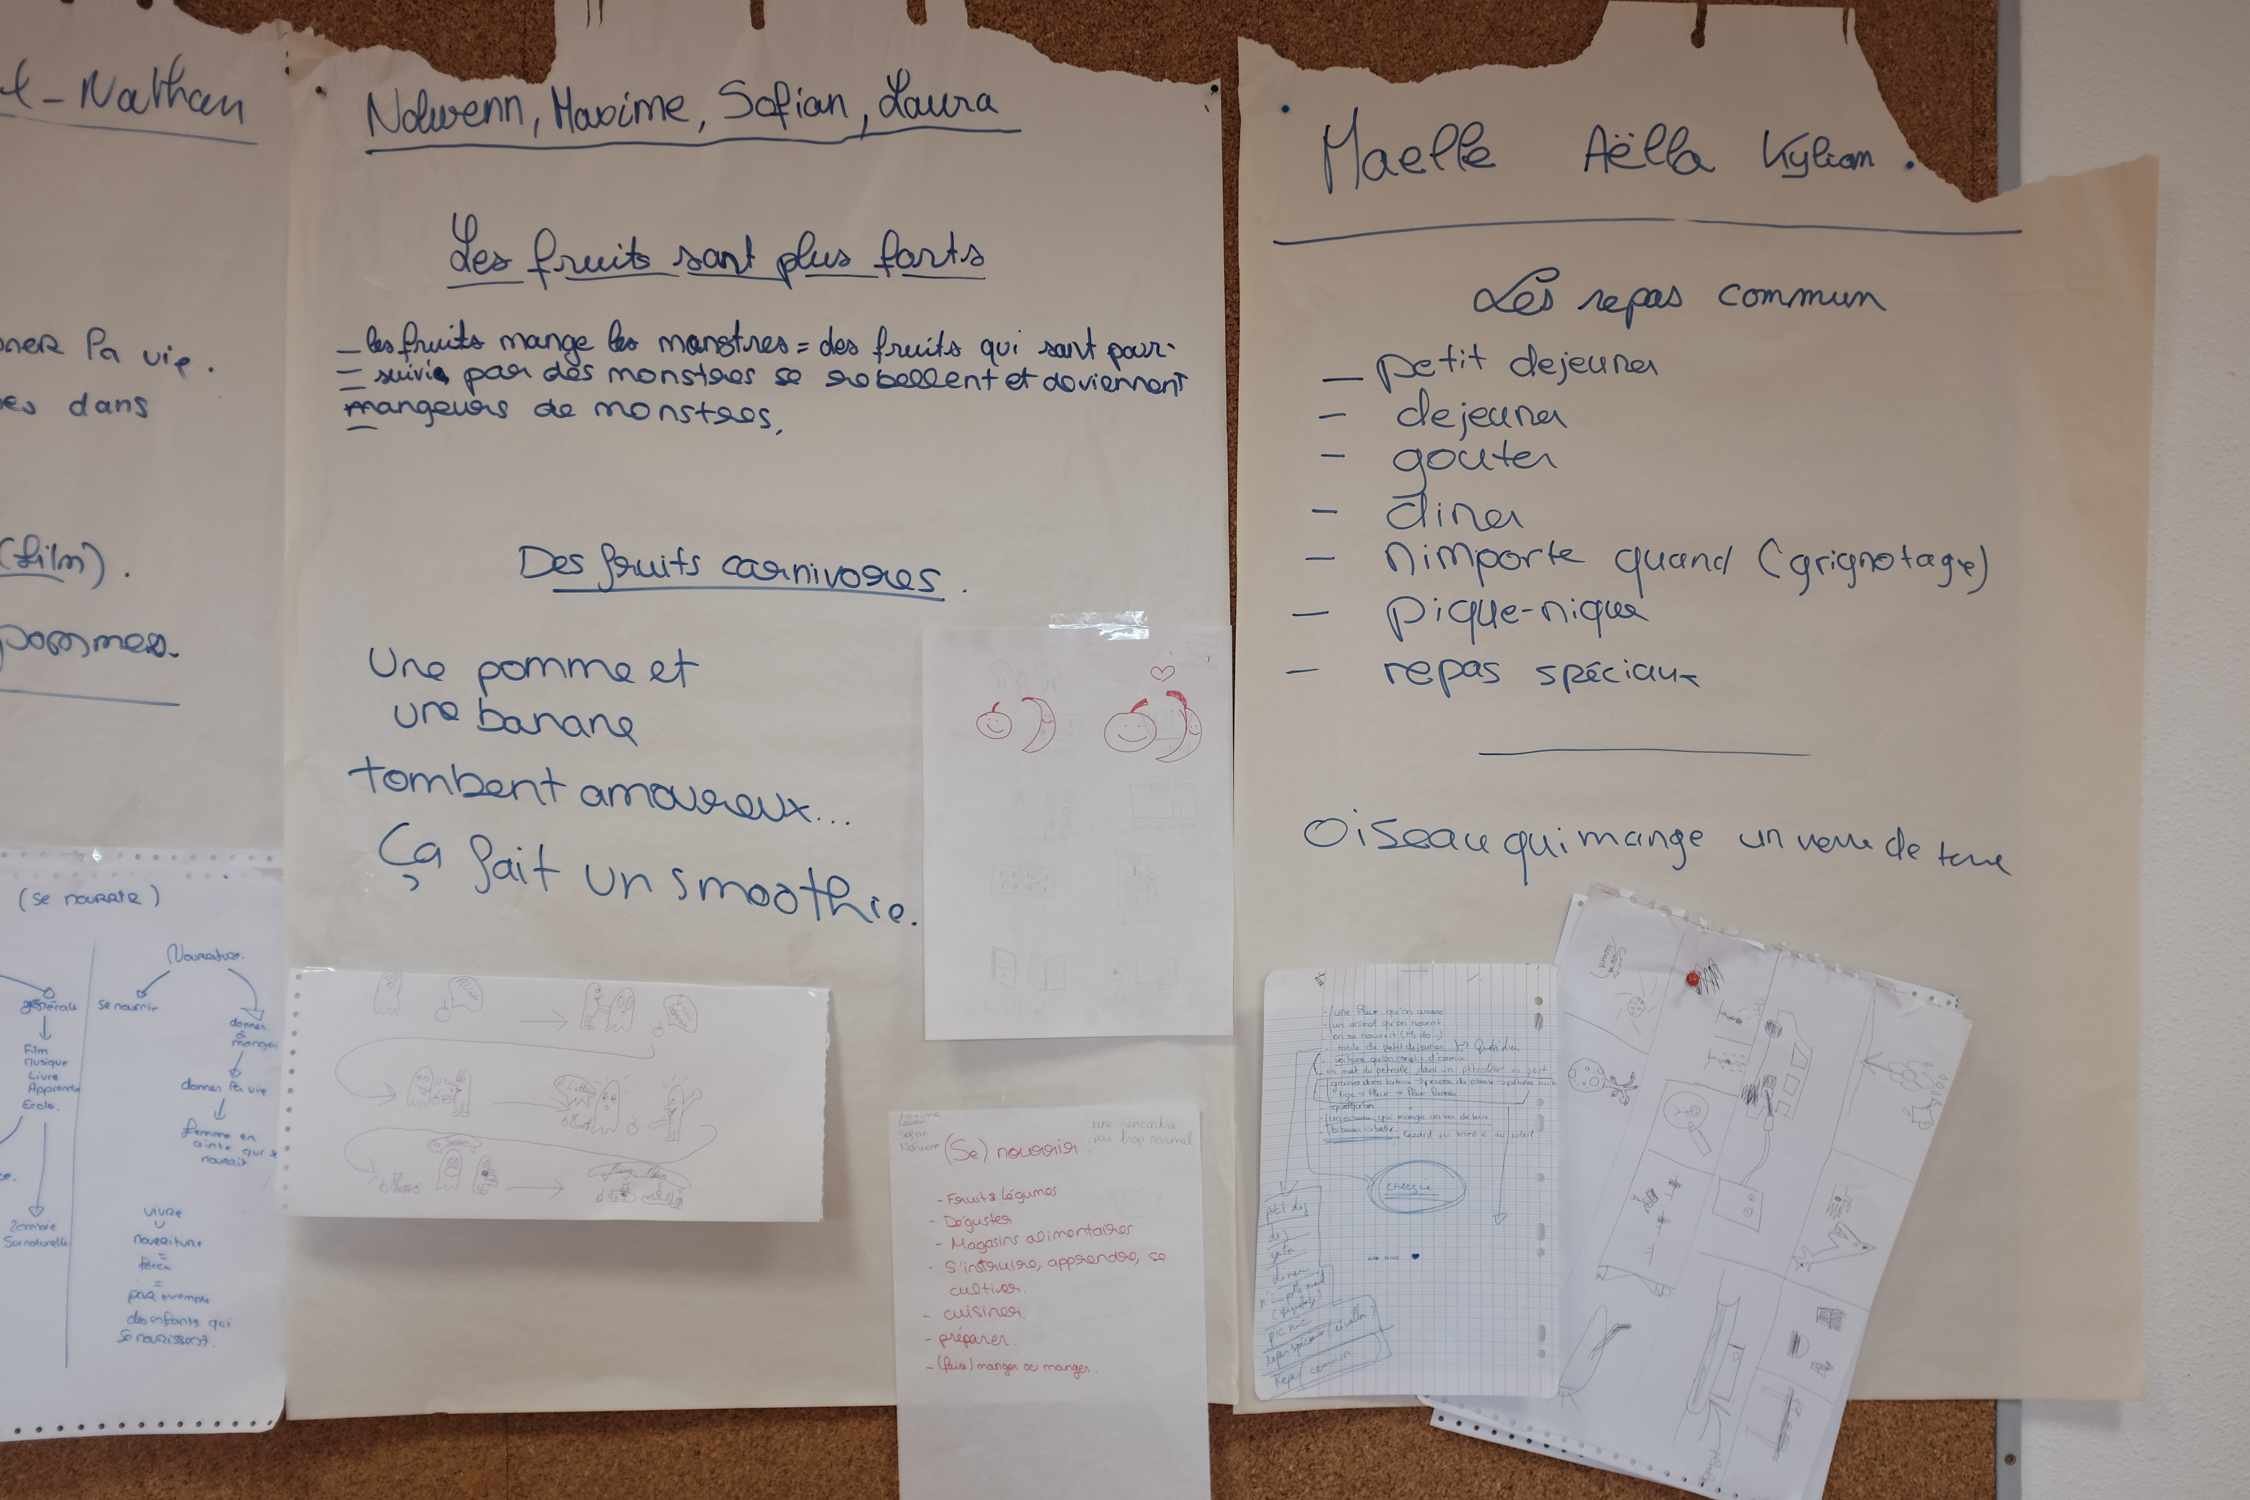 t - Nathan
ner la vie.
es dans
(film).
pommes.
(se nourrir)
Nourriture.
générale
se nourrir
donner
à
manger
Film
Musique
Livre
Apprendre
Ecole.
donner la vie
femme en
nourrit
Zombie
Surnaturelle
vivre
nourriture
=
force
=
par exemple
des enfants qui
se nourissent.
Nolwenn, Maxime, Sofian, Laura
Les fruits sont plus forts
- les fruits mange les monstres = des fruits qui sont pour-
- suivis par des monstres se rebellent et deviennent
mangeurs de monstres.
Des fruits carnivores.
Une pomme et
une banane
tombent amoureux...
Ça fait un smoothie.
Maxime
Laura
Sofian
Nolwenn
une rencontre
pas trop normal
(Se) nourrir
- Fruits légumes
- Déguster
- Magasins alimentaires
- S'instruire, apprendre, se
cultiver.
- cuisiner.
- préparer.
- (faire) manger ou manger.
Maelle Aëlla Kylian.
Les repas commun
- petit dejeuner
- dejeuner
- gouter
- diner
- nimporte quand (grignotage)
- pique-nique
- repas spéciaux
Oiseau qui mange un verre de terre
- une fleur qu'on arrose
- un animal qu'on nourrit
énergie
petit dej
dej
diner
pic nic
Repas commun